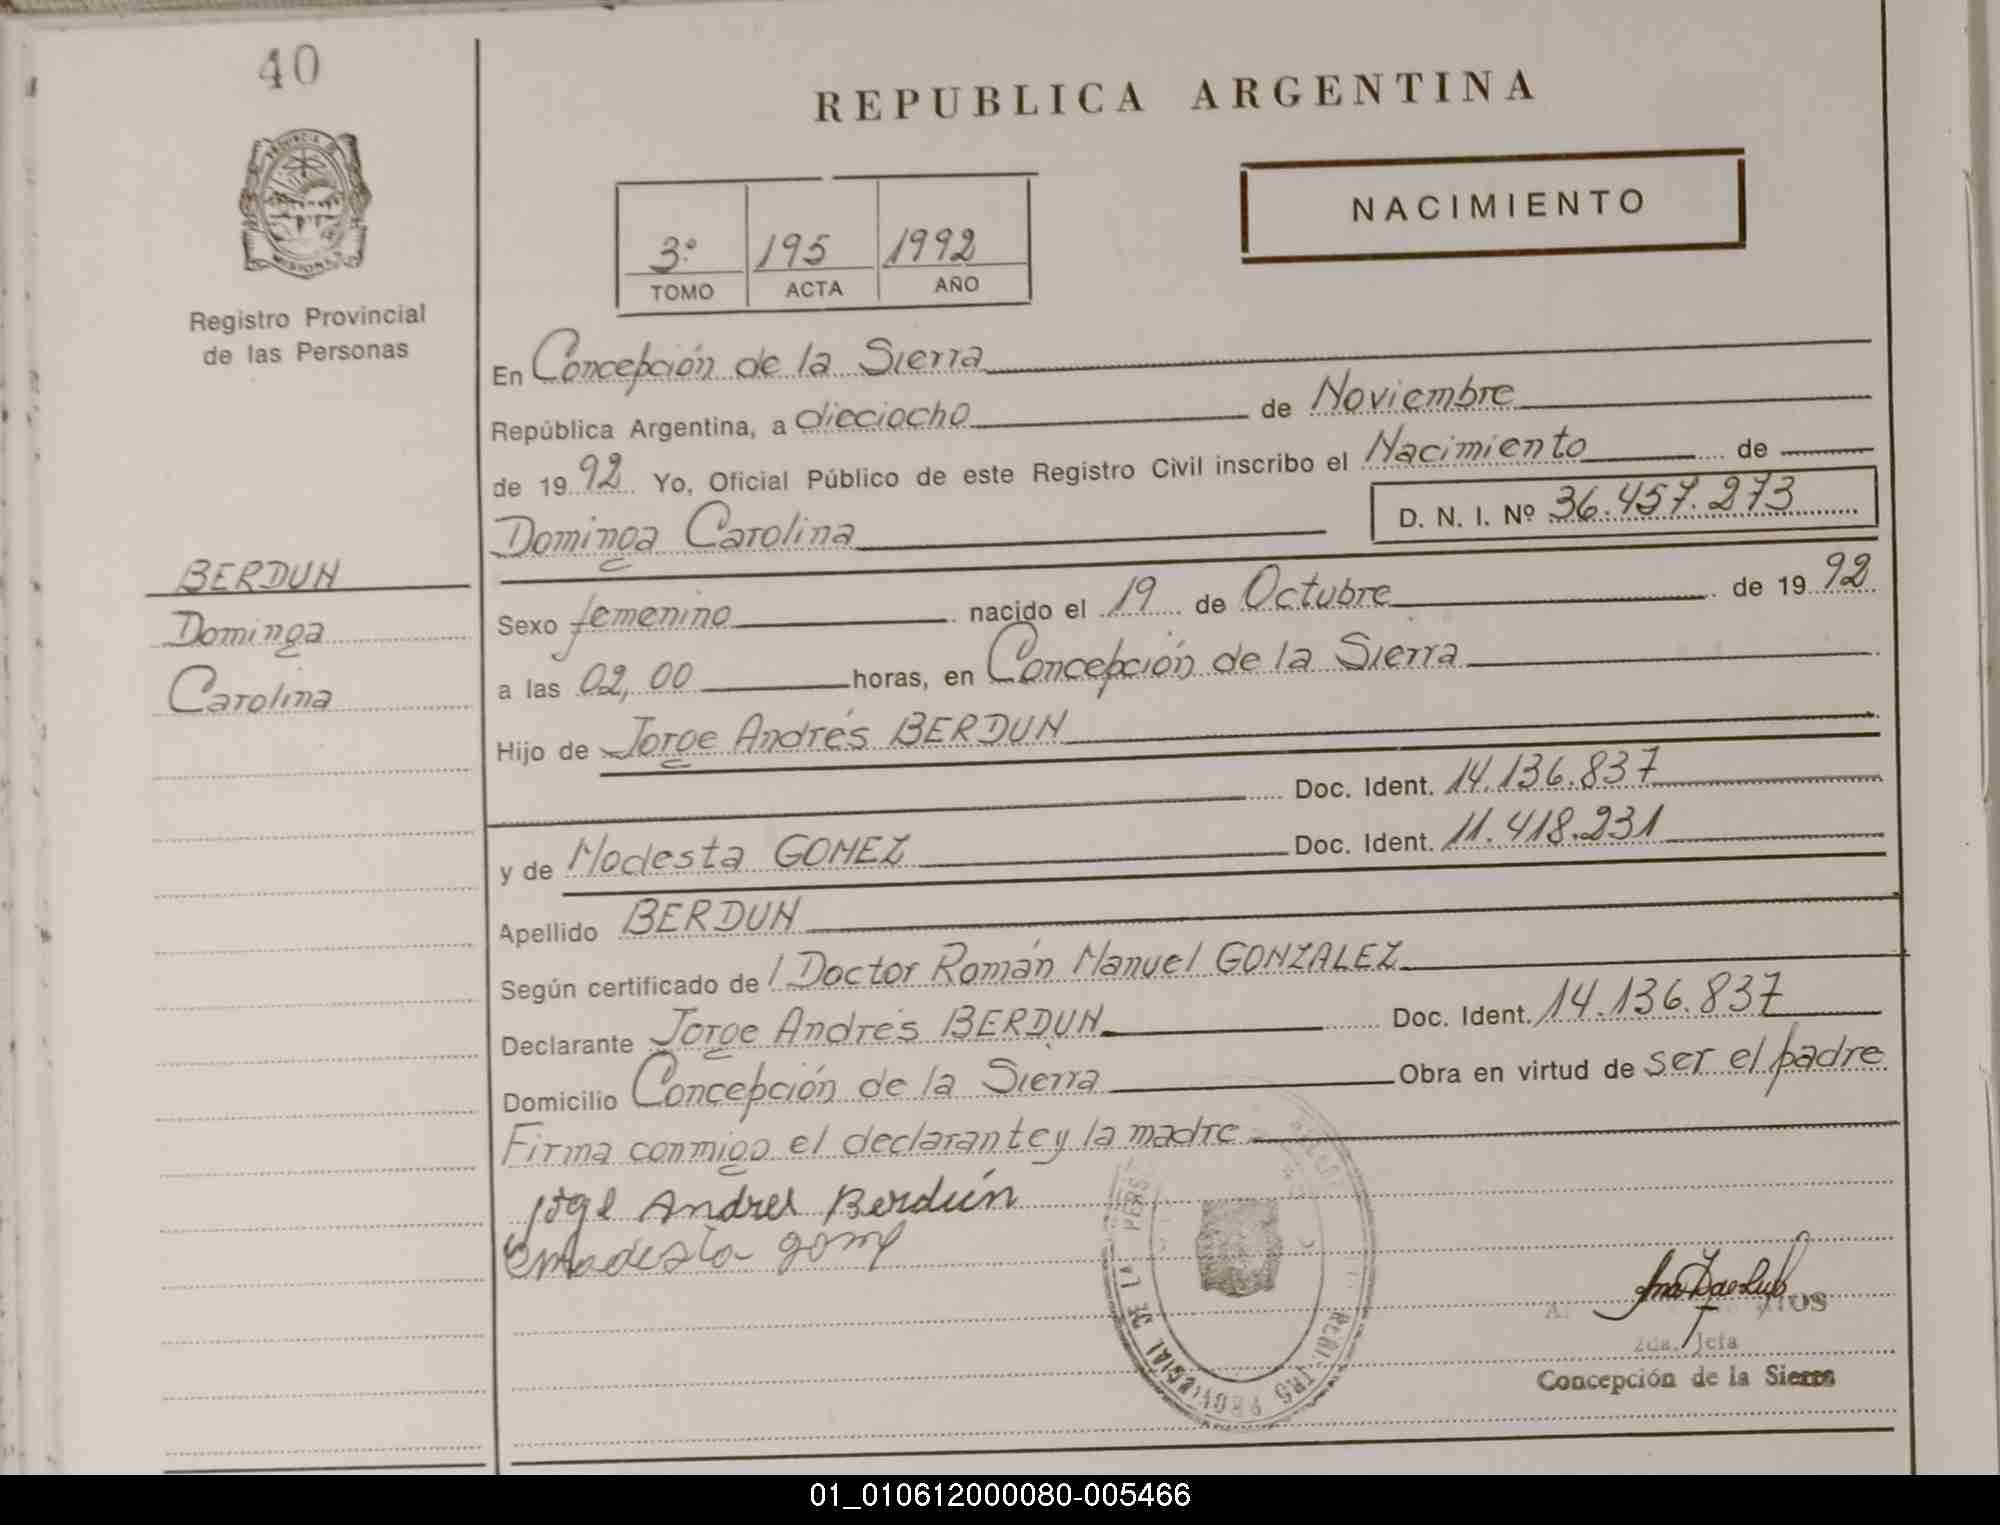 40
PROVINCIA DE
MISIONES
Registro Provincial
de las Personas
BERDUN
Dominga
Carolina
REPUBLICA ARGENTINA
NACIMIENTO
3º 195 1992
TOMO ACTA AÑO
En Concepción de la Sierra
República Argentina, a dieciocho de Noviembre
de 1992 Yo, Oficial Público de este Registro Civil inscribo el Nacimiento de
Dominga Carolina D. N. I. Nº 36.457.273
Sexo femenino nacido el 19 de Octubre de 1992
a las 02,00 horas, en Concepción de la Sierra
Hijo de Jorge Andrés BERDUN
Doc. Ident. 14.136.837
y de Modesta GOMEZ Doc. Ident. 11.418.231
Apellido BERDUN
Según certificado de / Doctor Román Manuel GONZALEZ
Declarante Jorge Andrés BERDUN Doc. Ident. 14.136.837
Domicilio Concepción de la Sierra Obra en virtud de ser el padre
Firma conmigo el declarante y la madre
Jorge Andres Berdún
modesta gomez
2da. Jefa
Concepción de la Sierra
PROVINCIAL DE LA PERS
01_010612000080-005466